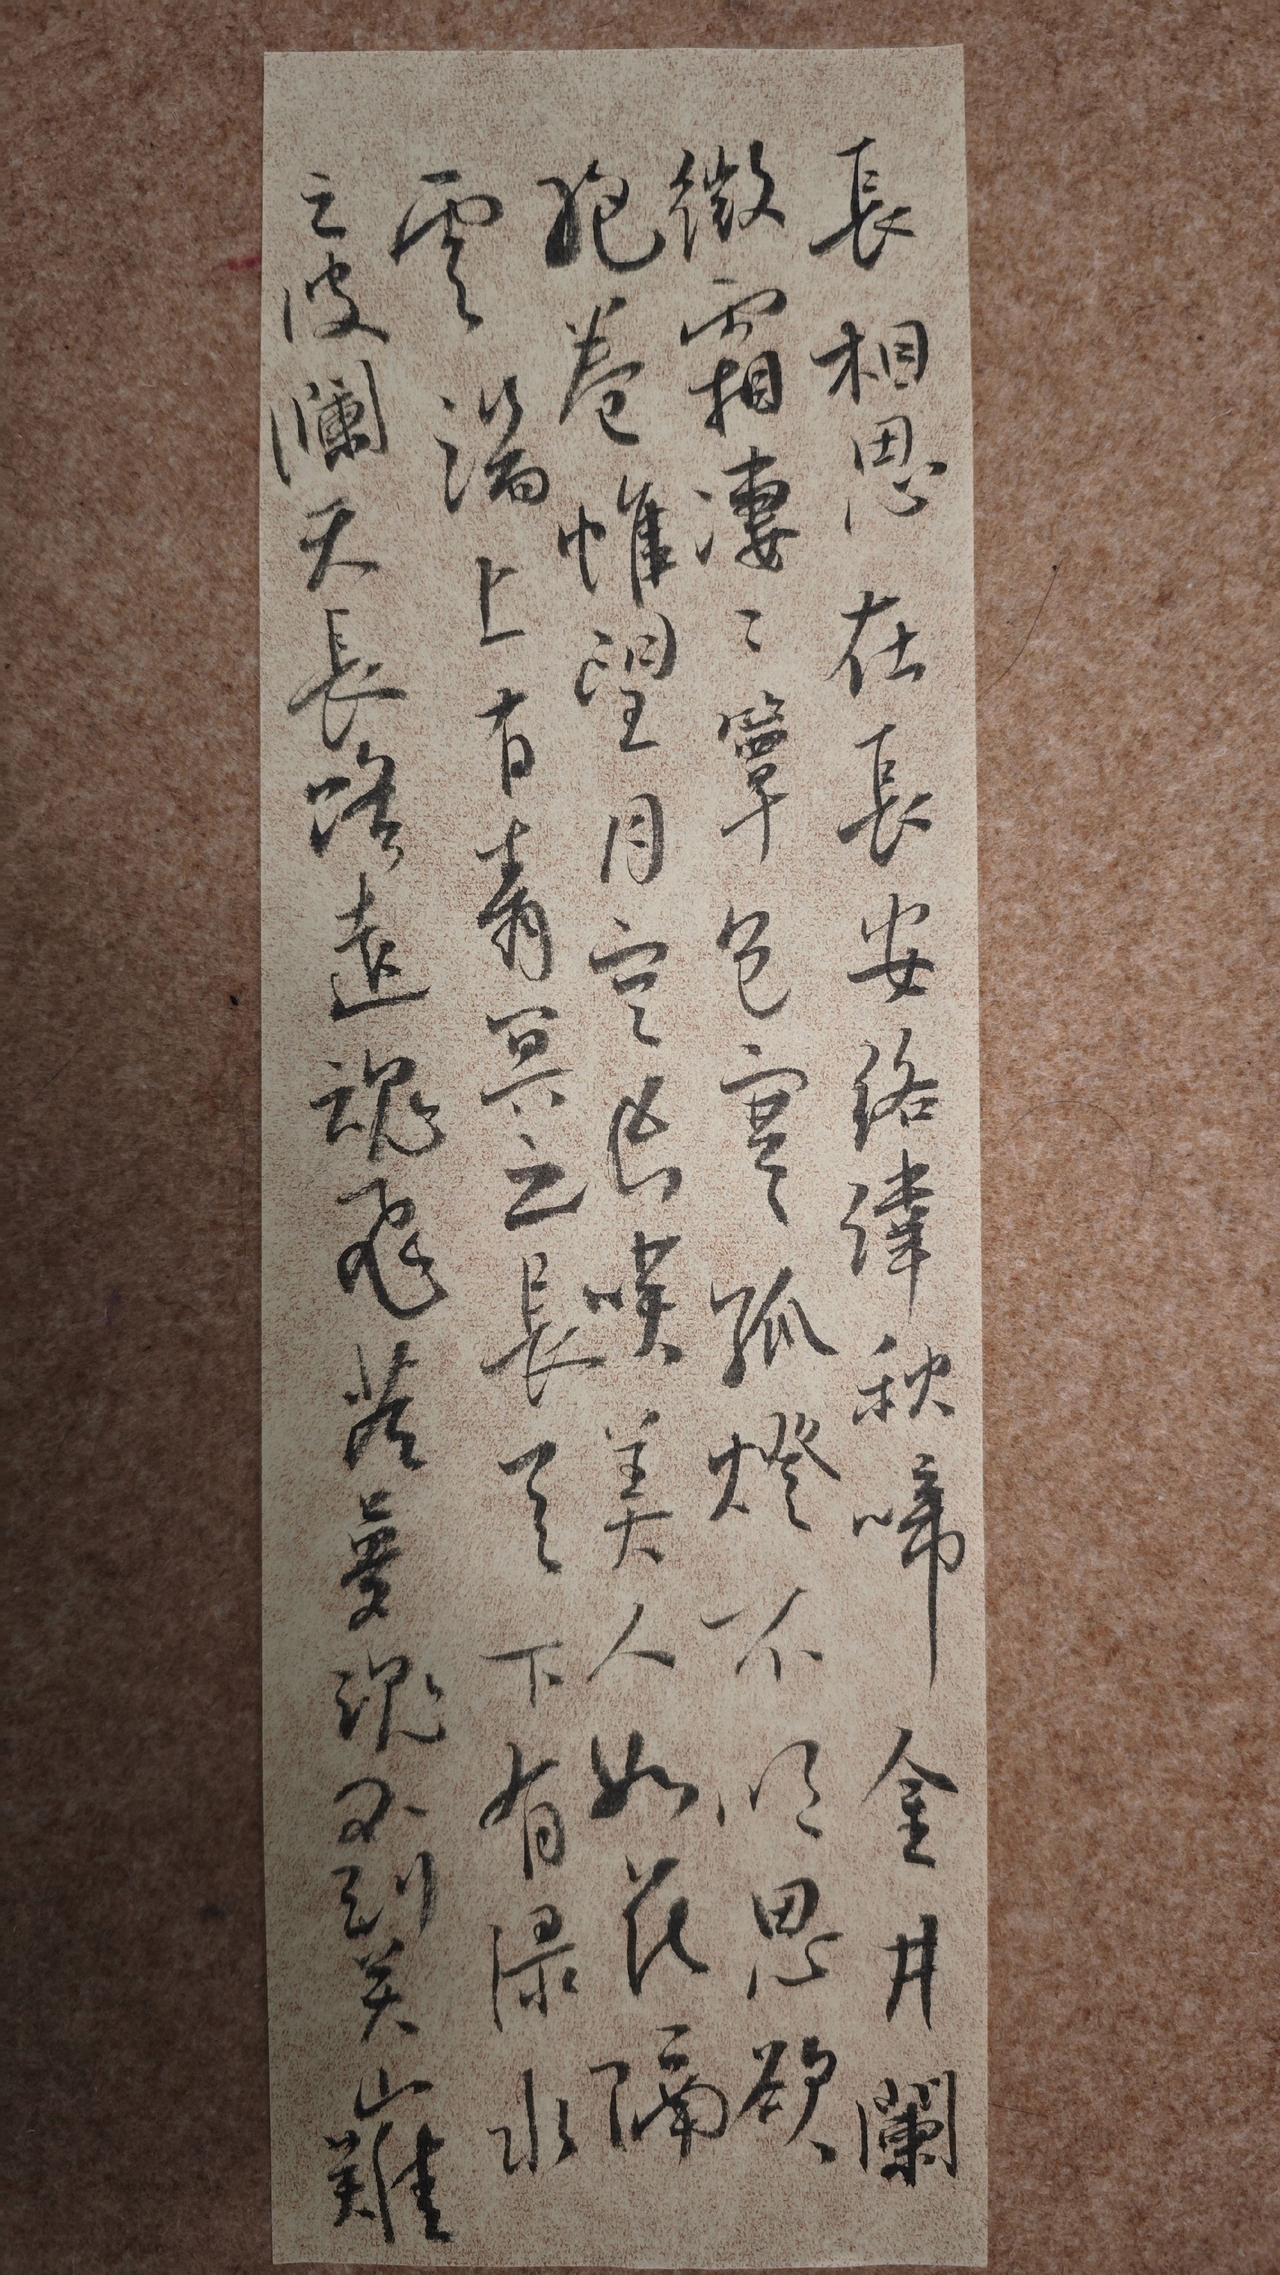 長相思在長安絡緯秋啼金井闌
微霜凄〻簟色寒孤燈不明思欲
絕卷帷望月空長嘆美人如花隔
雲端上有青冥之長天下有淥水
之波瀾天長路遠魂飛苦夢魂不到關山難